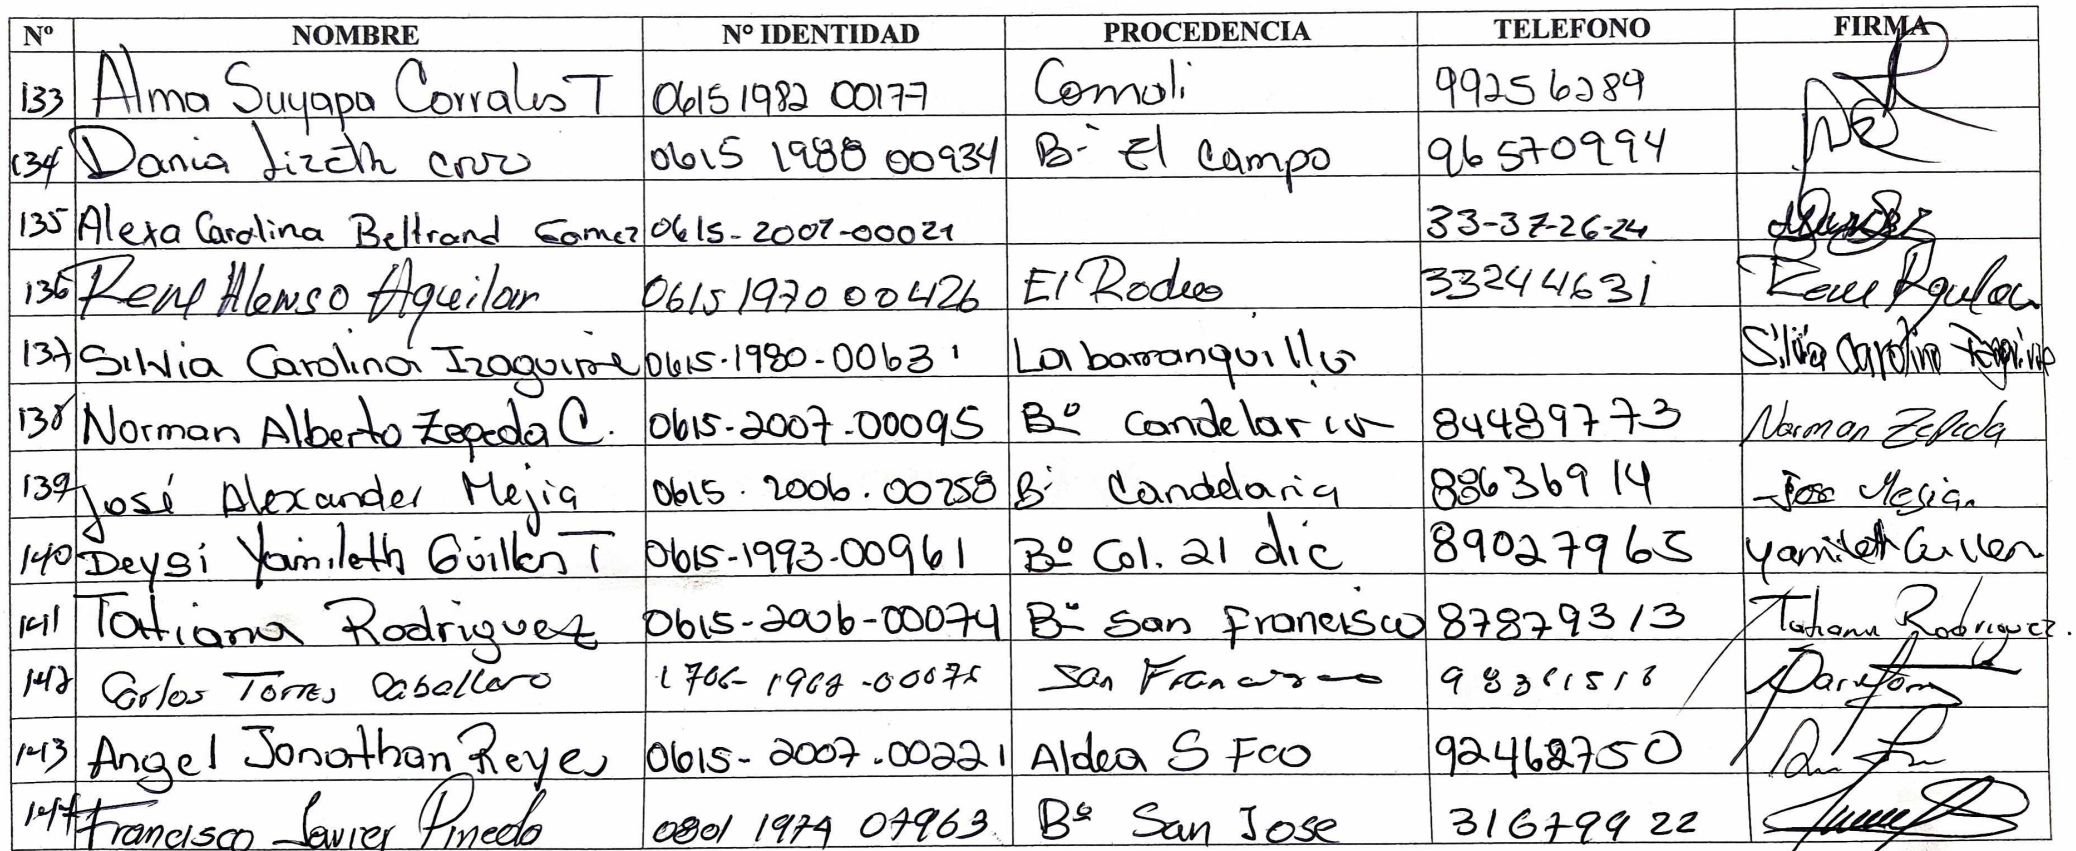 Nº NOMBRE Nº IDENTIDAD PROCEDENCIA TELEFONO FIRMA
133 Alma Suyapa Corrales T 0615 1982 00177 Comali 99256289
134 Dania Lizeth cruz 0615 1988 00934 B- El Campo 96570994
135 Alexa Carolina Beltrand Gomez 0615-2007-00021 33-37-26-24
136 Rene Alonso Aguilar 0615 1970 00426 El Rodeo 33244631 Rene Aguilar
137 Silvia Carolina Izaguirre 0615-1980-00631 La barranquilla Silvia Carolina Izaguirre
138 Norman Alberto Zepeda C. 0615-2007-00095 Bº Candelaria 84489773 Norman Zepeda
139 José Alexander Mejia 0615.2006.00258 B· Candelaria 88636914 Jose Mejia
140 Deysi Yamileth Guillen T 0615-1993-00961 Bº Col. 21 dic 89027965 Yamileth Guillen
141 Tatiana Rodriguez 0615-2006-00074 Bº San Francisco 87879313 Tatiana Rodriguez.
142 Carlos Torres Caballero San Francisco
143 Angel Jonathan Reyes 0615-2007-00221 Aldea S Fco 92462750
144 Francisco Javier Pineda 0801 1974 07963 Bº San Jose 31679922